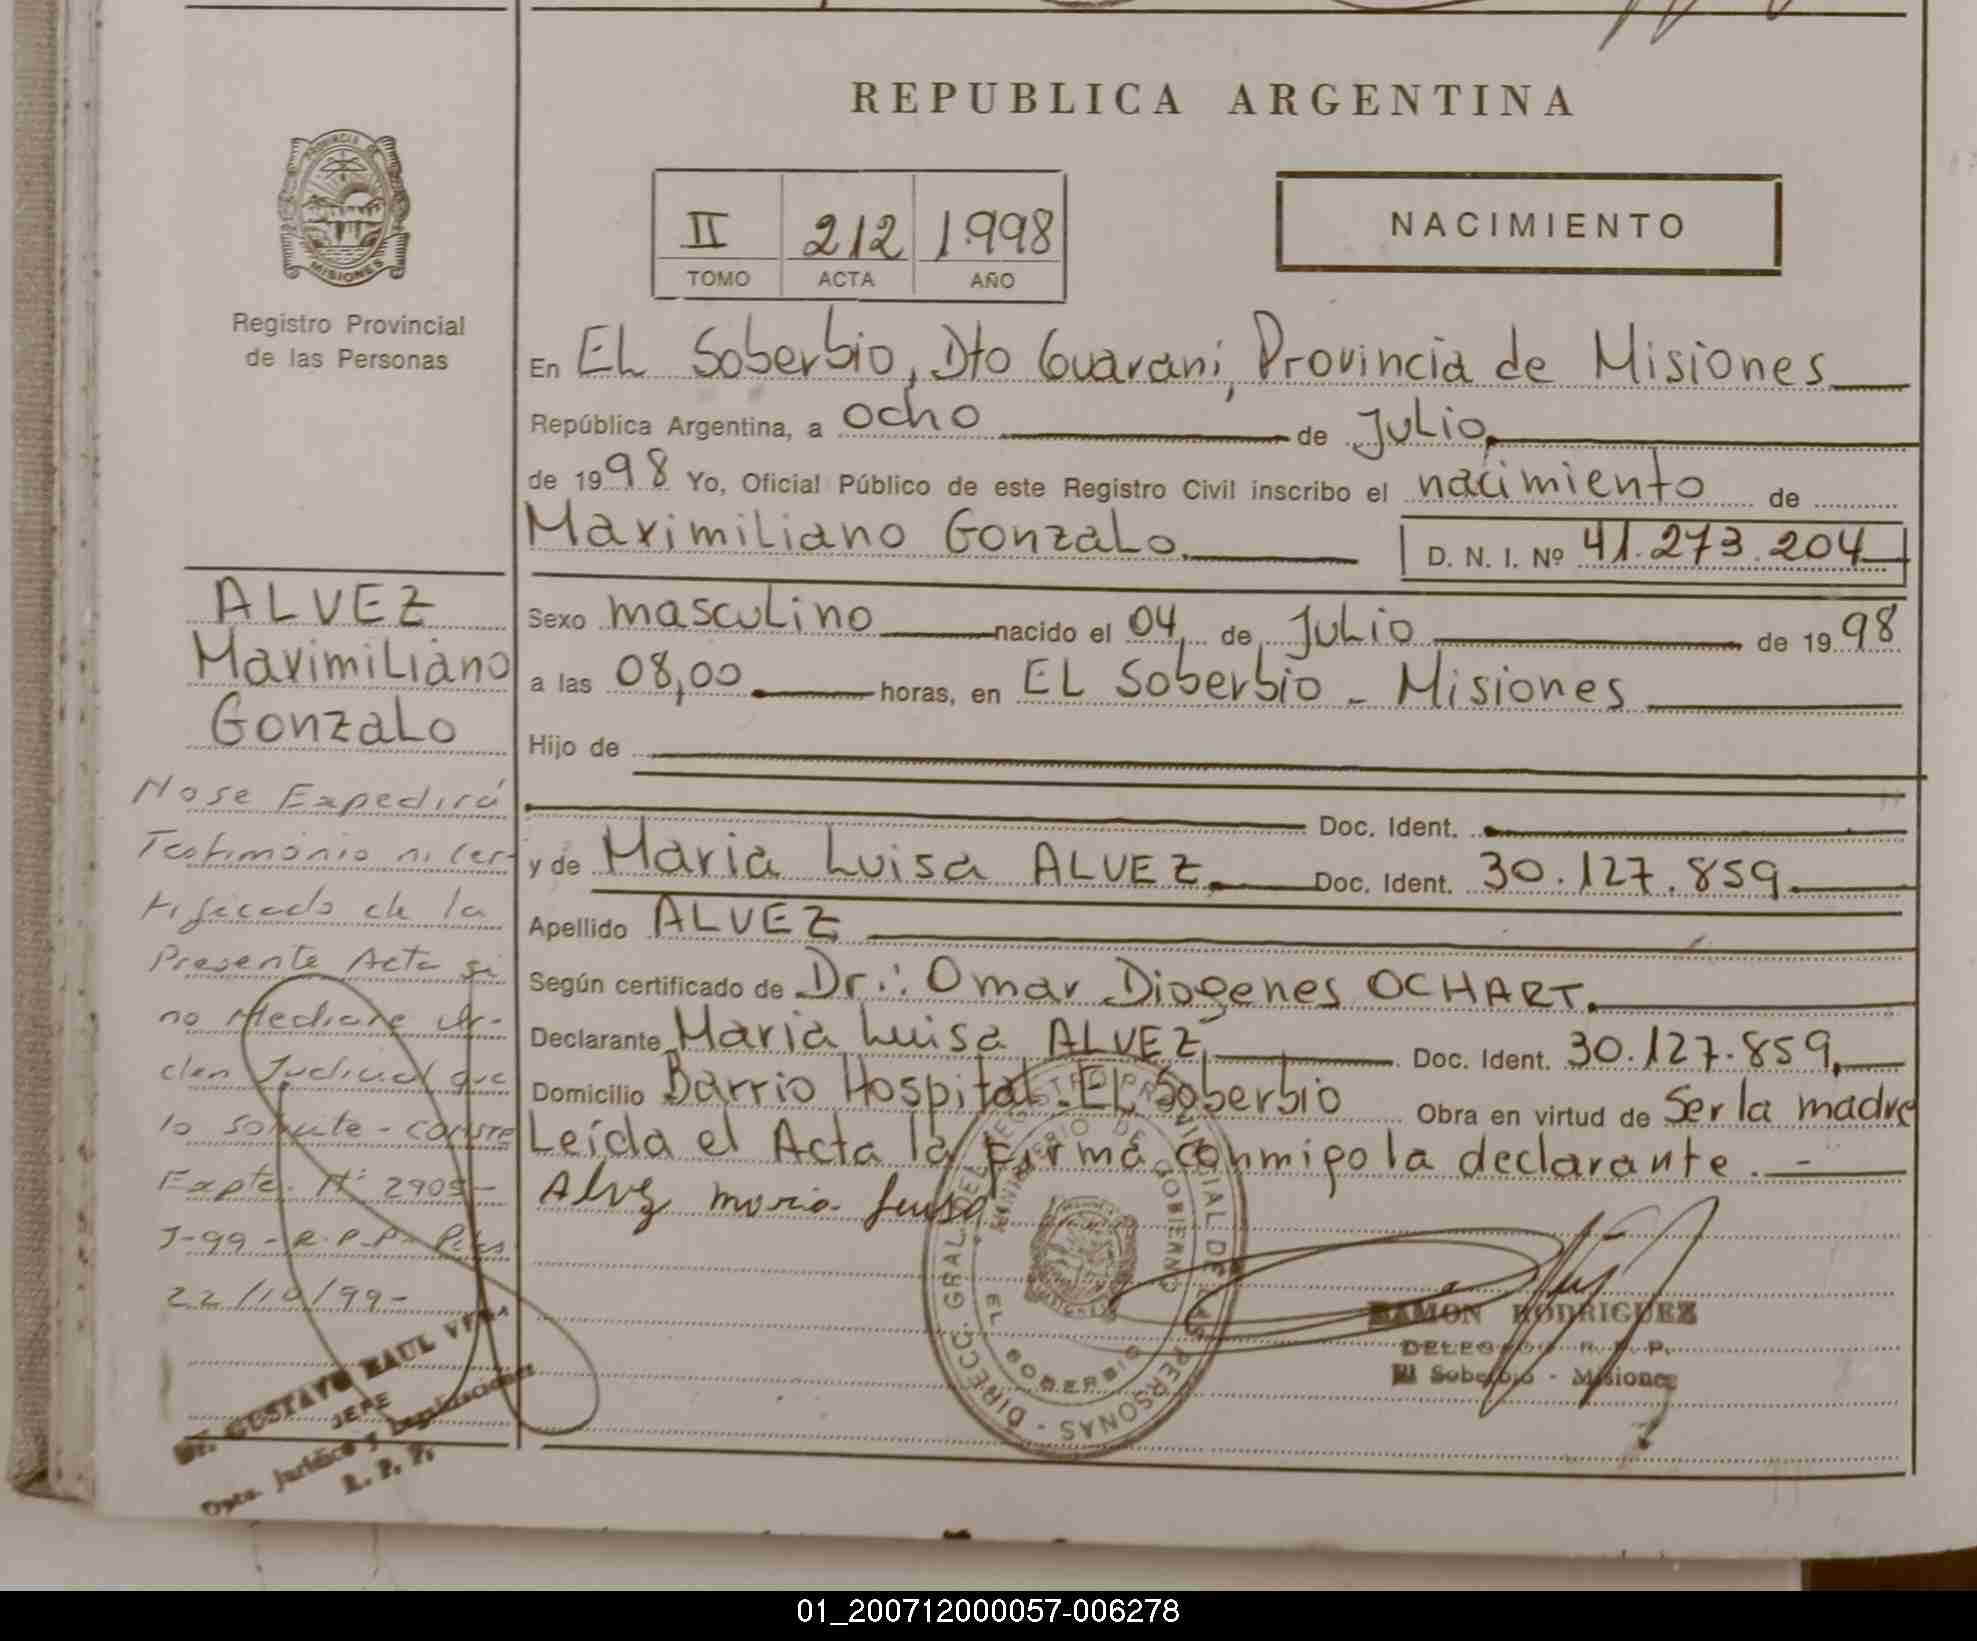 REPUBLICA ARGENTINA
PROVINCIA DE
MISIONES
Registro Provincial
de las Personas
II 212 1998
TOMO ACTA AÑO
NACIMIENTO
En EL Soberbio, Dto Guarani, Provincia de Misiones
República Argentina, a ocho de Julio
de 1998 Yo, Oficial Público de este Registro Civil inscribo el nacimiento de
Maximiliano Gonzalo. D. N. I. Nº 41.273.204
Sexo masculino nacido el 04, de Julio de 1998
a las 08,00 horas, en EL Soberbio - Misiones
Hijo de
Doc. Ident.
y de Maria Luisa ALVEZ. Doc. Ident. 30.127.859
Apellido ALVEZ
Según certificado de Dr.: Omar Diogenes OCHART.
Declarante Maria Luisa ALVEZ Doc. Ident. 30.127.859,
Domicilio Barrio Hospital. EL Soberbio Obra en virtud de Ser la madre
Leída el Acta la firma conmigo la declarante. -
Alvez maria luisa
ALVEZ
Maximiliano
Gonzalo
No se Expedirá
Testimonio ni Cer-
tificado de la
Presente Acta si
no Mediare Or-
den Judicial que
lo solicite - conste
Expte. Nº 2905-
J-99 - R.P.P.
22/10/99-
Dr. GUSTAVO RAUL VEGA
JEFE
Dpto. Jurídico y Legalizaciones
R. P. P.
DIRECC. GRAL. DEL REGISTRO PROVINCIAL DE LAS PERSONAS -
MINISTERIO DE GOBIERNO
EL SOBERBIO
RAMON RODRIGUEZ
DELEGADO R. P. P.
El Soberbio - Misiones
01_200712000057-006278